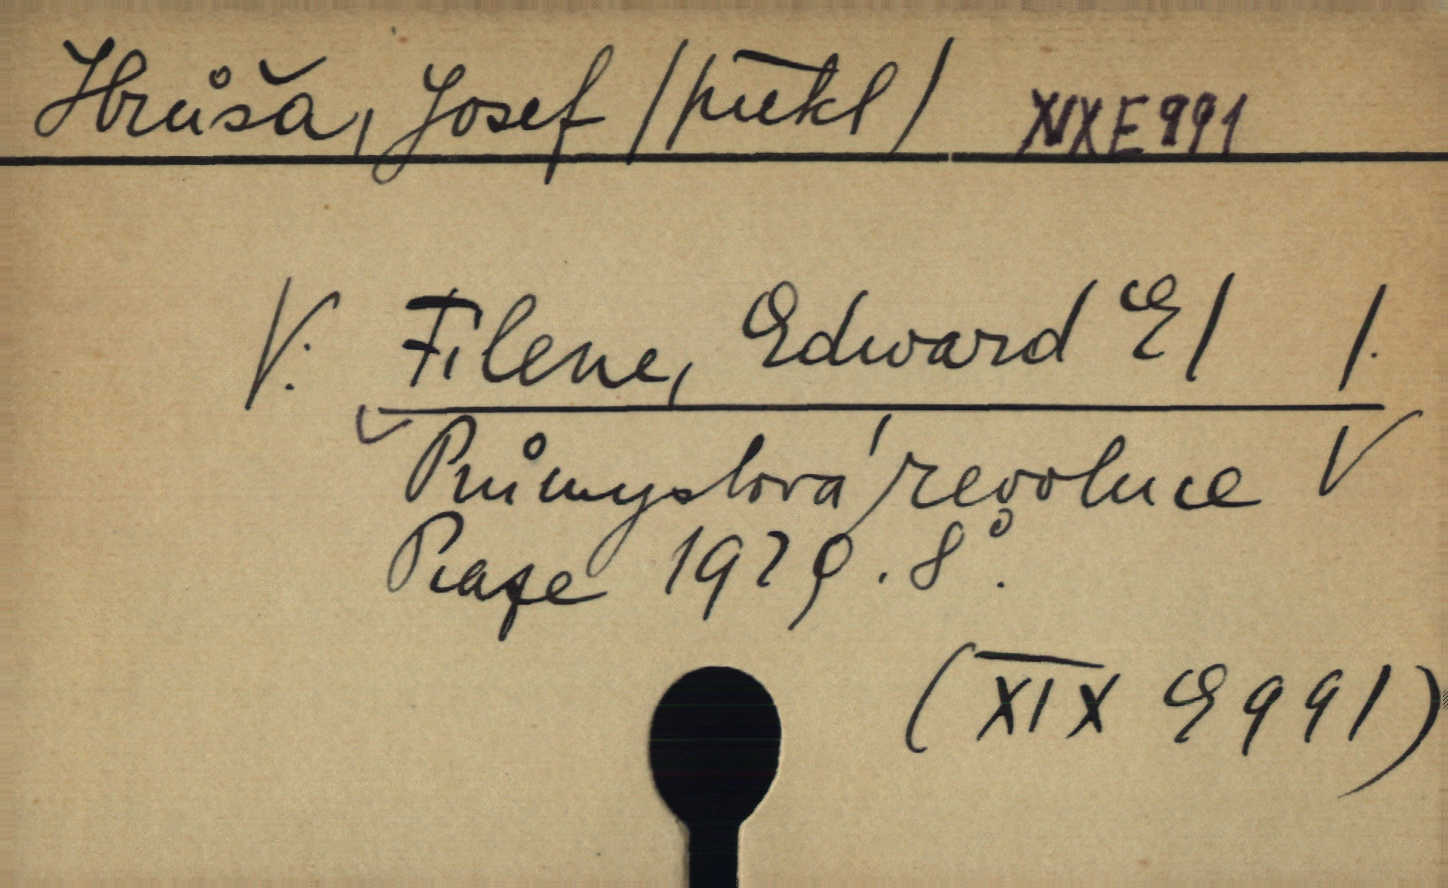 Hrůša, Josef /překl/ XIXE991
V: Filene, Edward E/ /.
Průmyslová revoluce V
Praze 1929. 8°.
(XIX E 991)